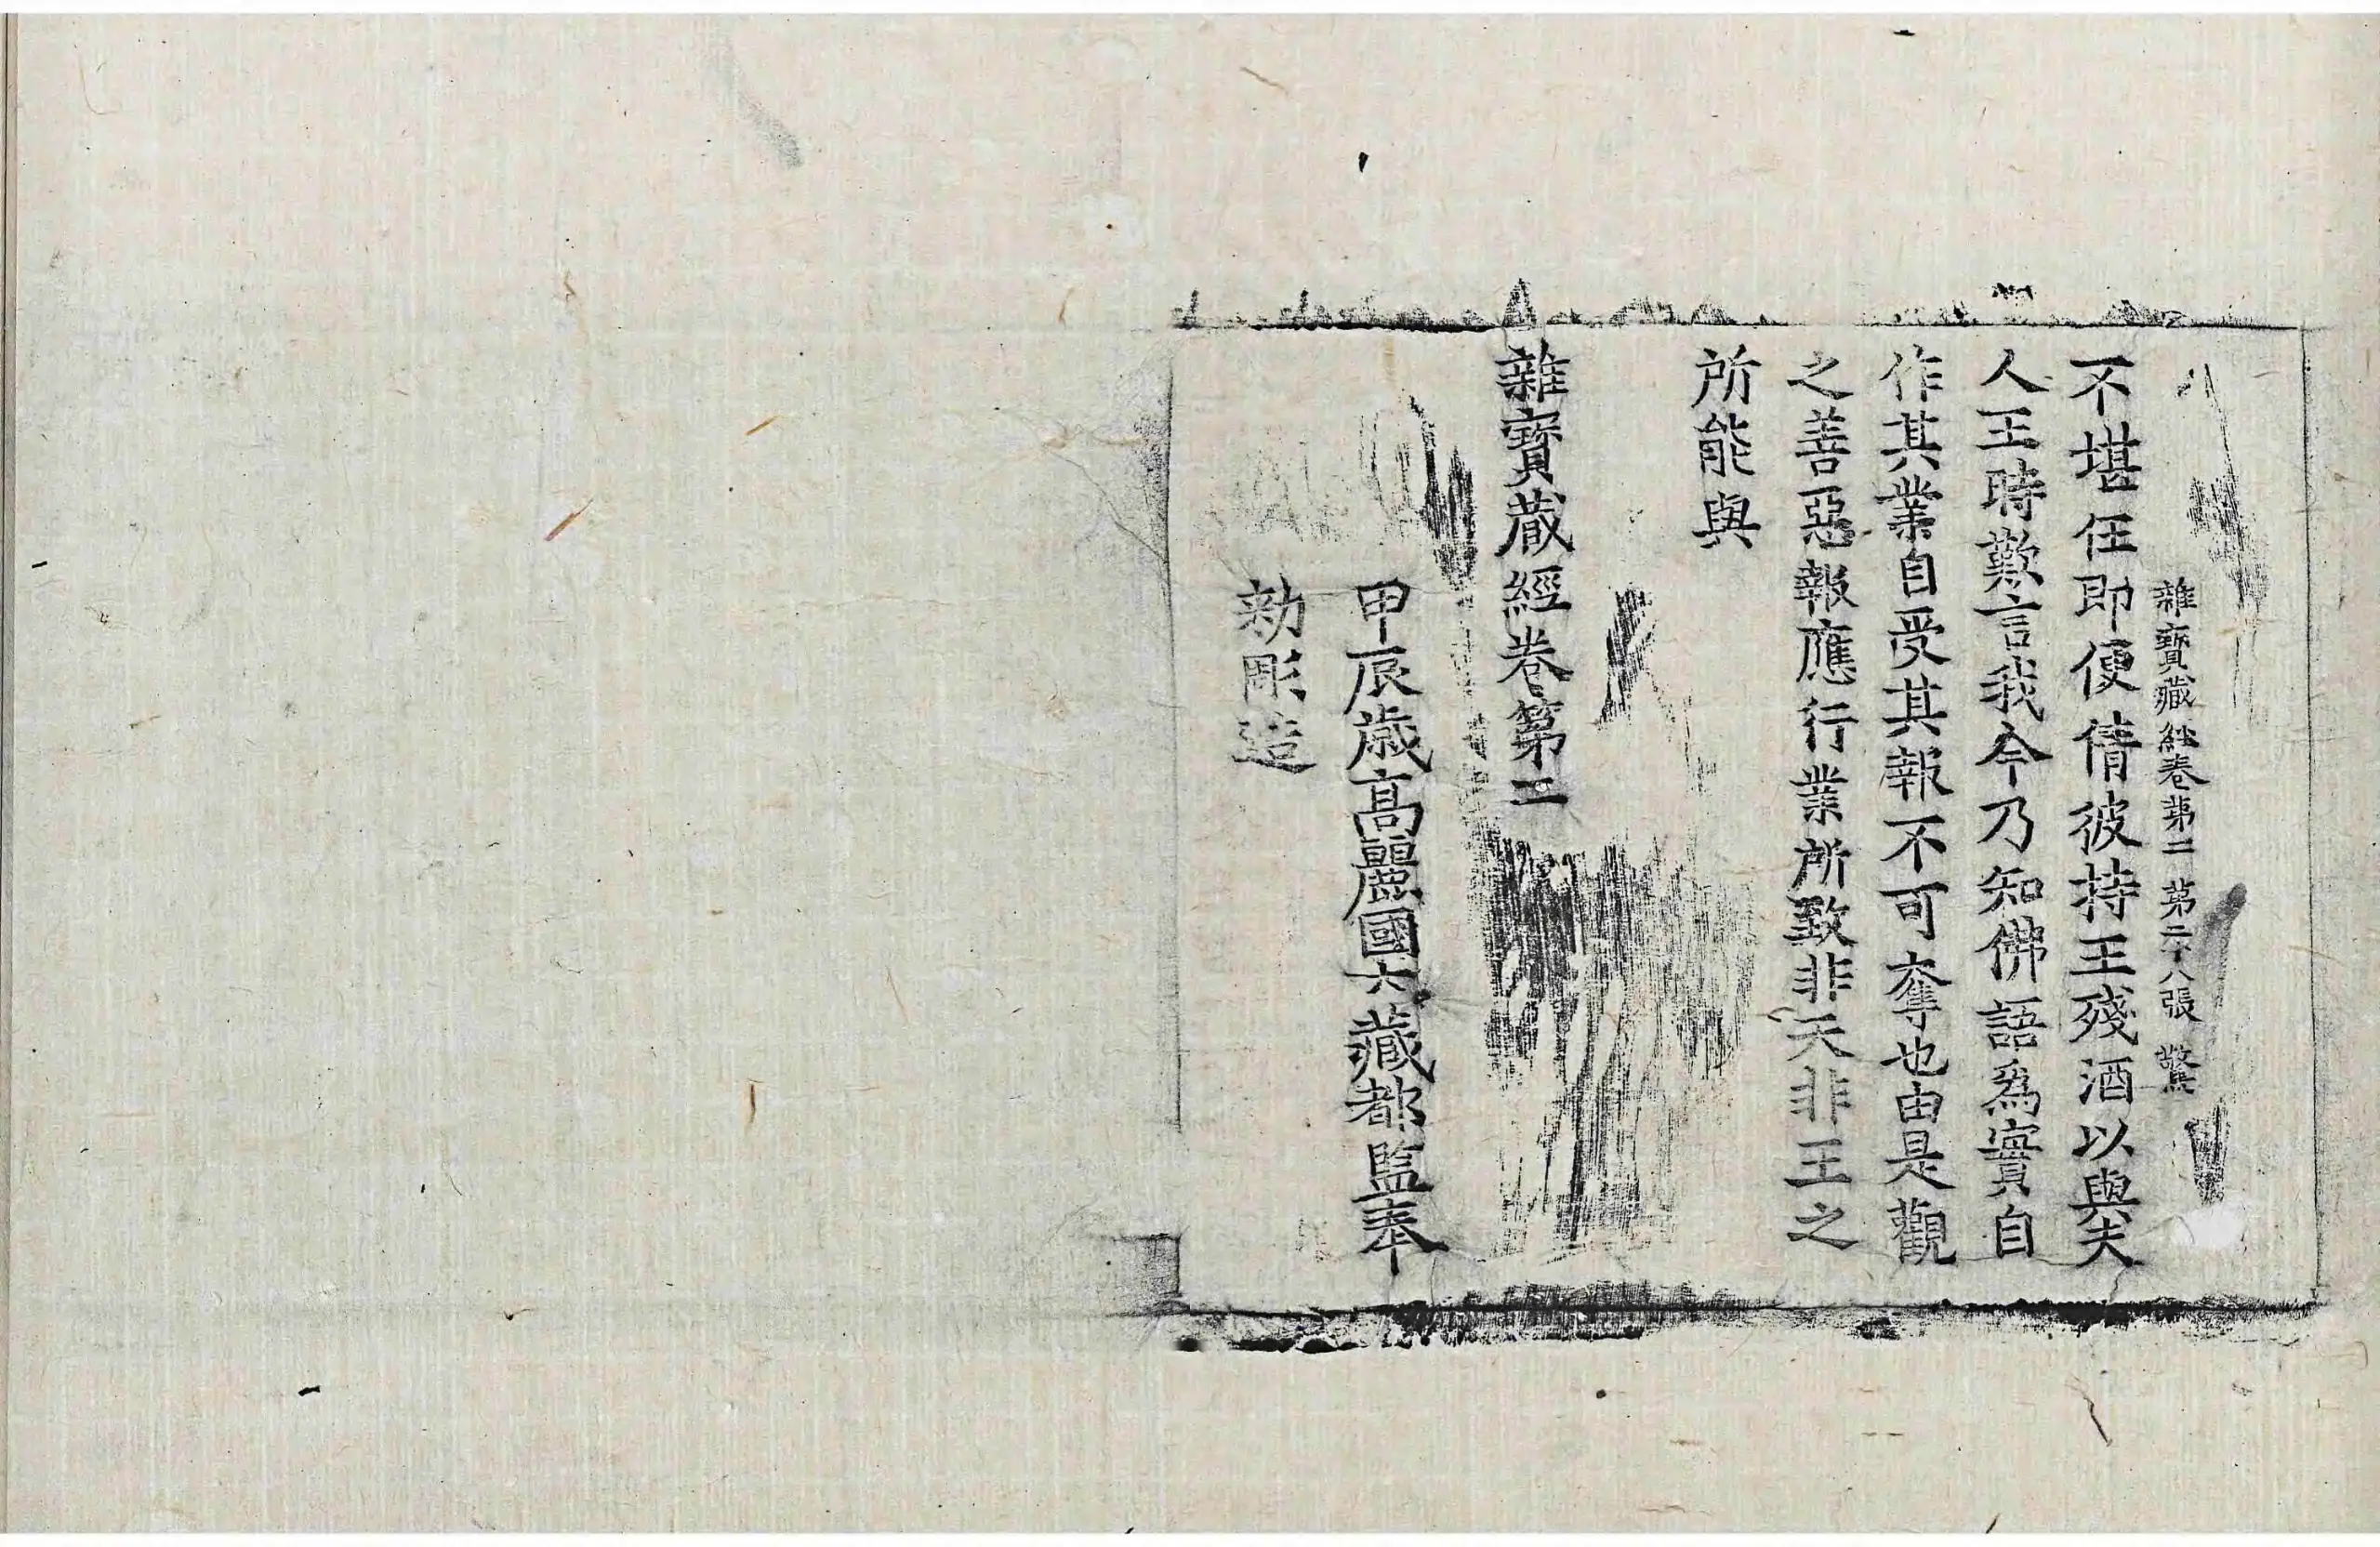 雜寶藏経卷第二 第二十八張 驚
不堪任即便倩彼持王殘酒以與夫
人王時歎言我今乃知佛語爲實自
作其業自受其報不可奪也由是觀
之善惡報應行業所致非天非王之
所能與
雜寶蔵經卷第二
甲辰歳高麗國大藏都監奉
勅彫造